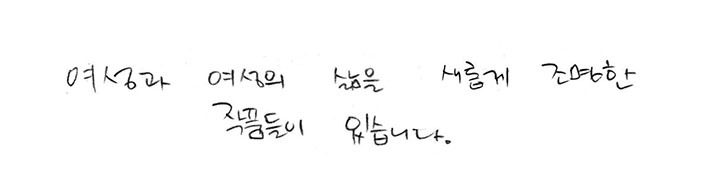 여성과 여성의 삶을 새롭게 조명한
작품들이 있습니다.